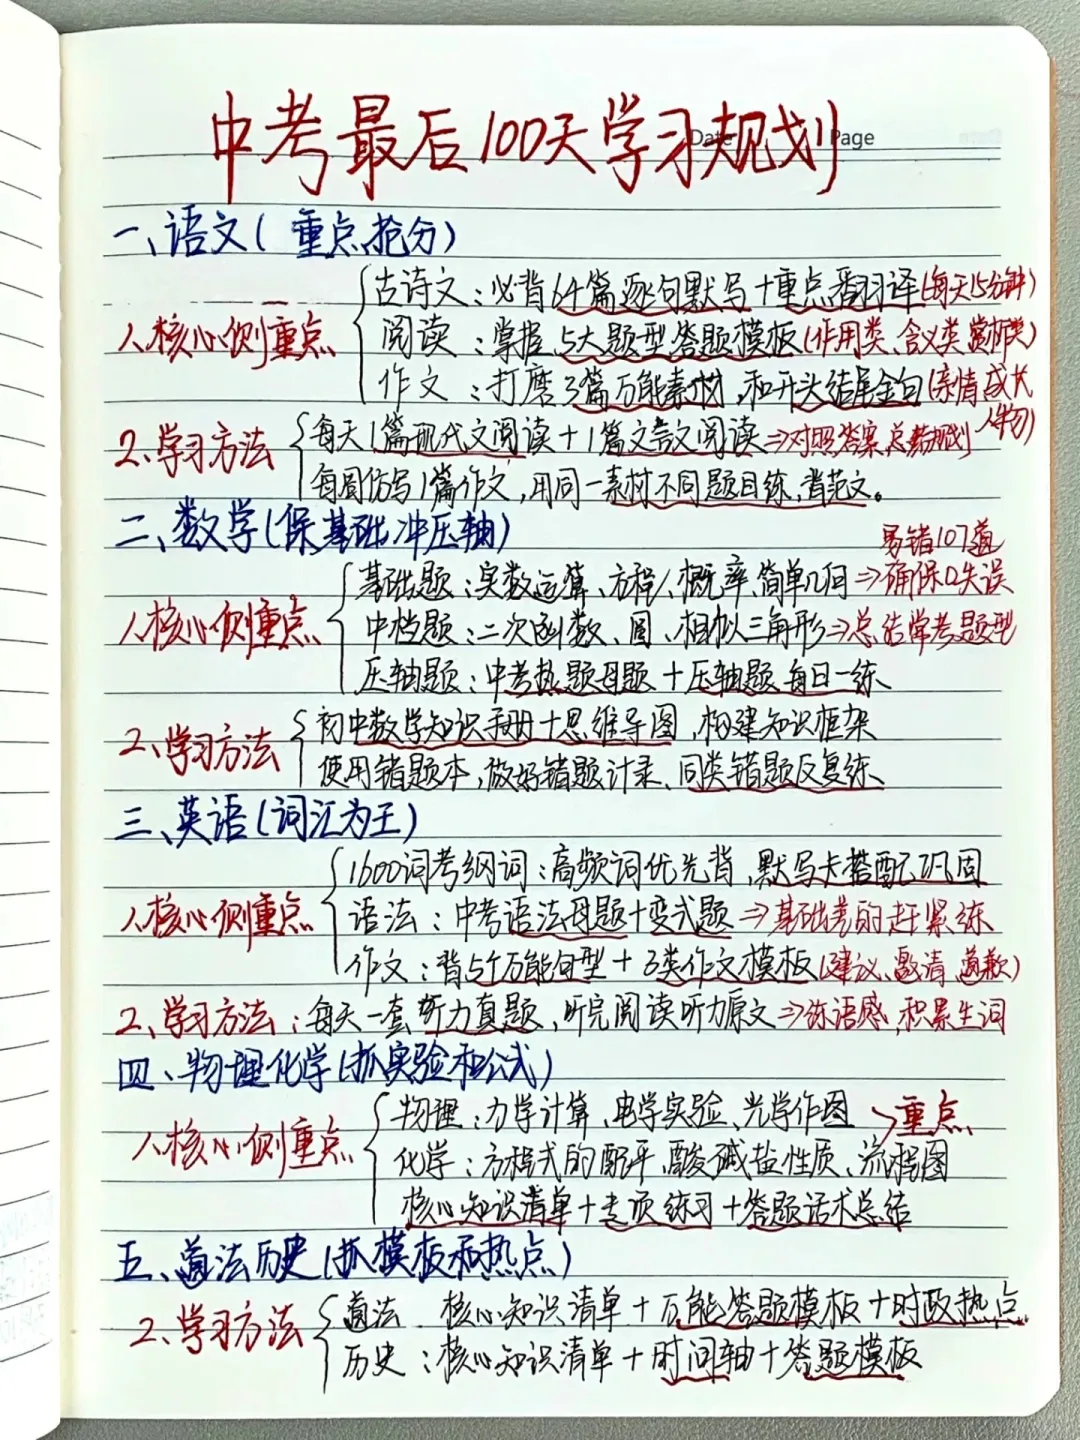 中考最后100天学习规划
Date Page
一、语文(重点抢分)
1.核心侧重点
古诗文:必背64篇逐句默写+重点翻译(每天15分钟)
阅读:掌握5大题型答题模板(作用类、含义类、赏析类)
作文:打磨3篇万能素材,和开头结尾金句(亲情成长人物)
2.学习方法
每天1篇现代文阅读+1篇文言文阅读⇒对照答案总结规划
每周仿写1篇作文,用同一素材不同题目练,背范文。
二、数学(保基础冲压轴)
易错107道
1.核心侧重点
基础题:实数运算、方程、概率、简单几何⇒确保0失误
中档题:二次函数、圆、相似三角形⇒总结常考题型
压轴题:中考热题母题+压轴题每日一练
2.学习方法
初中数学知识手册+思维导图,构建知识框架
使用错题本,做好错题计录、同类错题反复练
三、英语(词汇为王)
1.核心侧重点
1600词考纲词:高频词优先背,默写卡搭配巩固
语法:中考语法母题+变式题⇒基础差的赶紧练
作文:背5个万能句型+3类作文模板(建议、邀请、道歉)
2.学习方法:每天一套听力真题、听完阅读听力原文⇒练语感,积累生词
四、物理化学(抓实验和公式)
1.核心侧重点
物理:力学计算、电学实验、光学作图 >重点
化学:方程式的配平、酸碱盐性质、流程图
核心知识清单+专项练习+答题话术总结
五、道法历史(抓模板和热点)
2.学习方法
道法.核心知识清单+万能答题模板+时政热点.
历史:核心知识清单+时间轴+答题模板